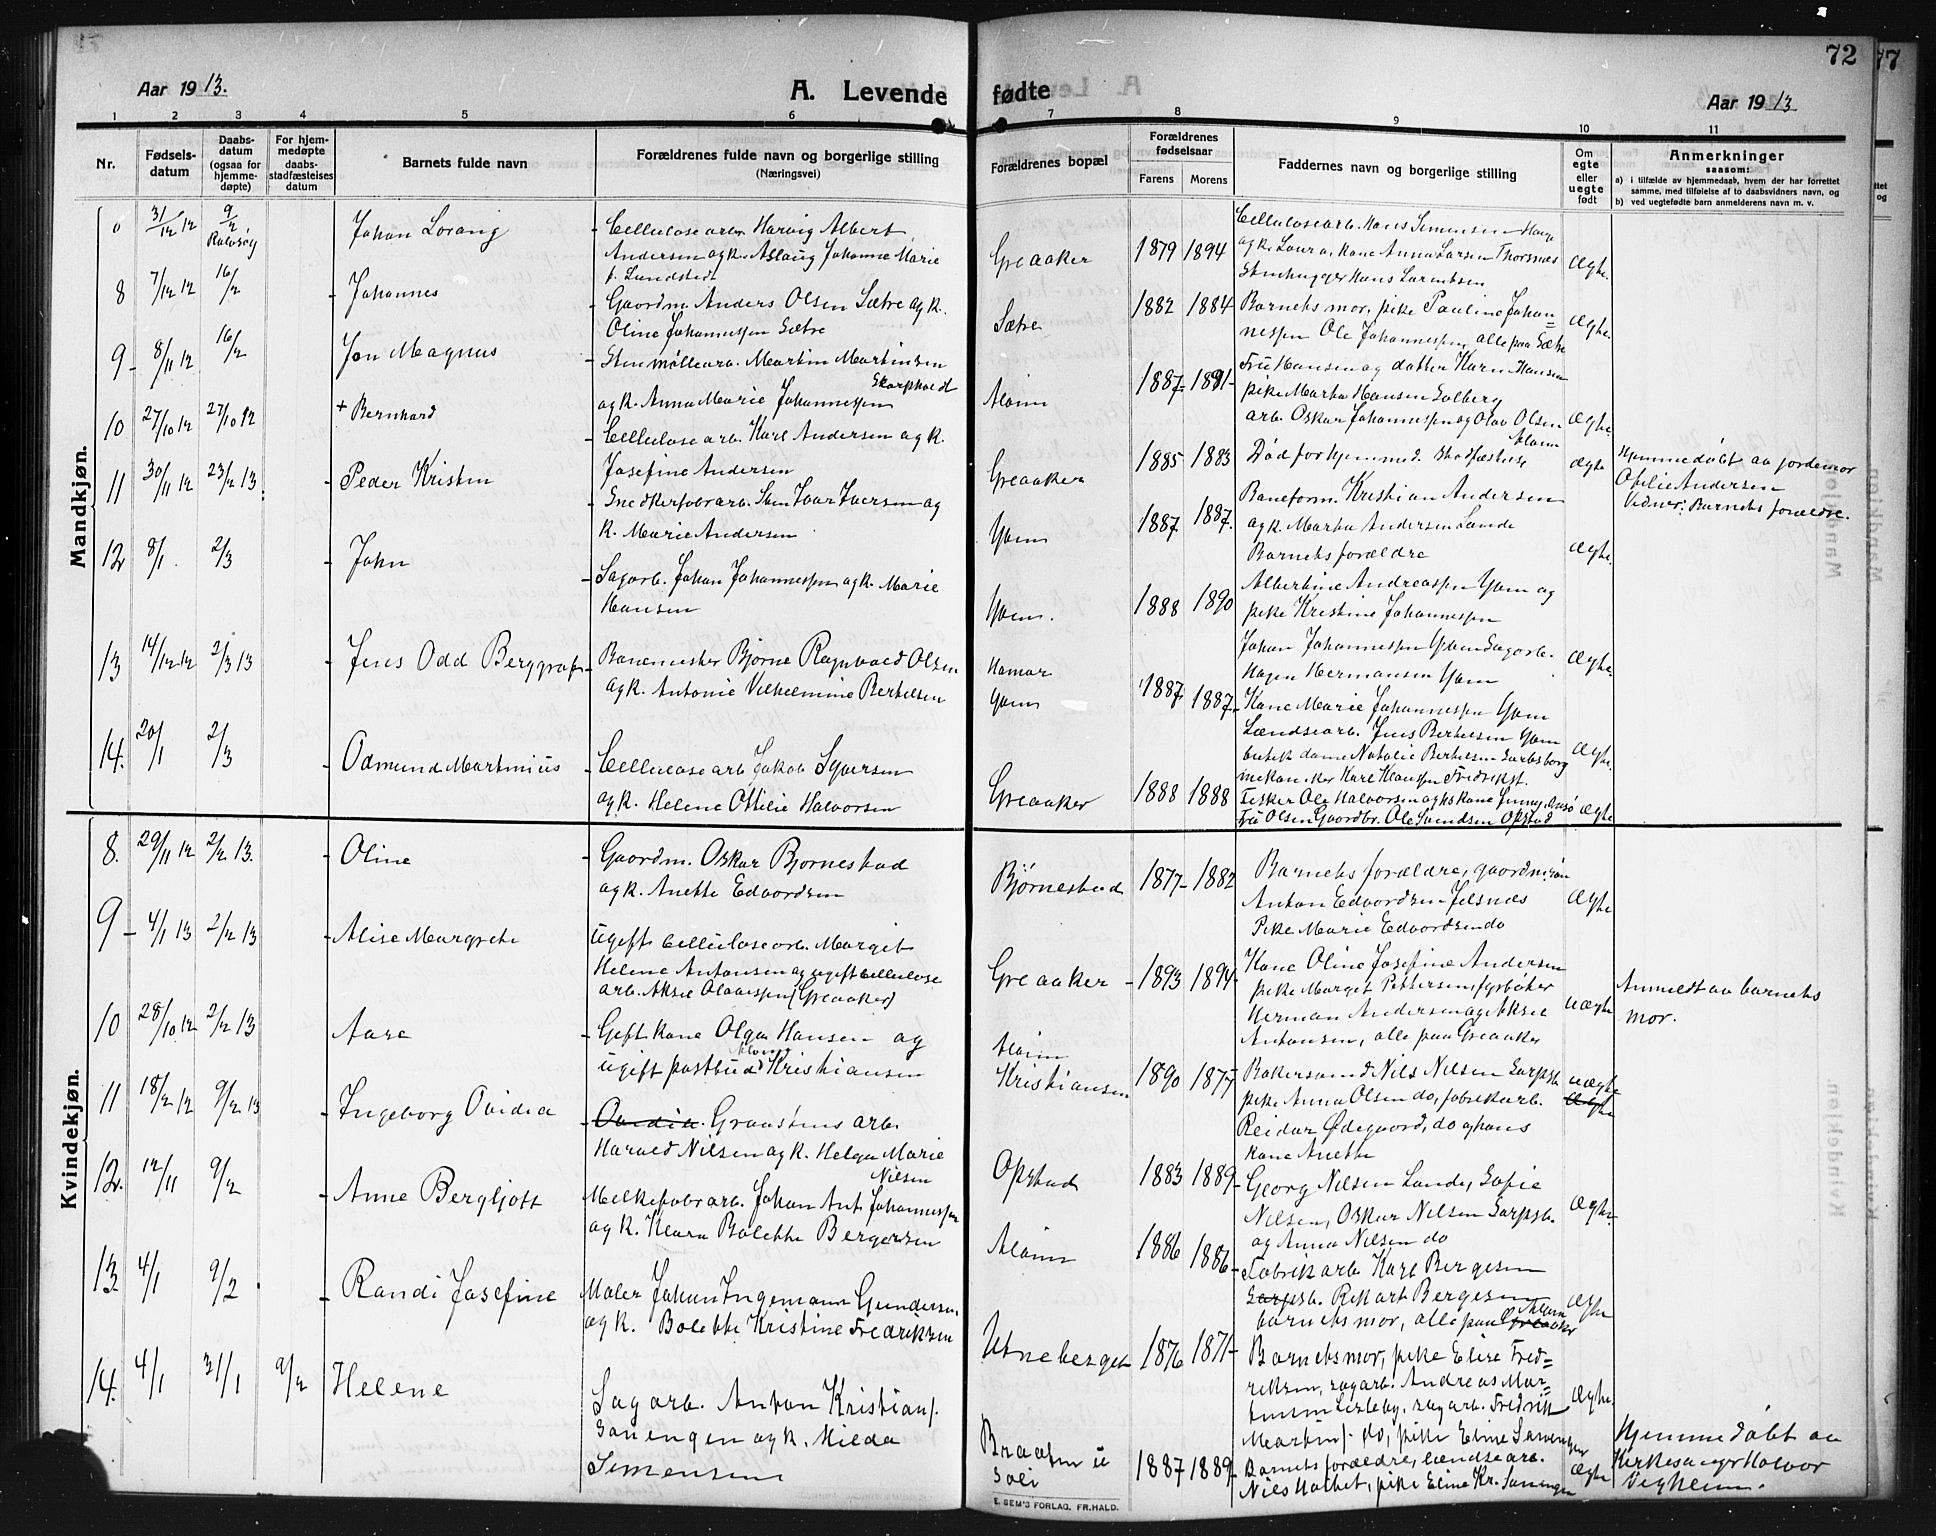 72
77
Aar 1913.
A. Levende fødte
Aar 1913
1 2 3 4 5 6 7 8 9 10 11
Nr.
Fødsels-
datum
Daabs-
datum
(ogsaa for
hjemme-
døpte)
For hjem-
medøpte
daabs-
stadfæstelses
datum
Barnets fulde navn
Forældrenes fulde navn og borgerlige stilling
(Næringsvei)
Forældrenes bopæl
Forældrenes
fødselsaar
Farens Morens
Faddernes navn og borgerlige stilling
Om
egte
eller
uegte
født
Anmerkninger
saasom:
a) i tilfælde av hjemmedaab, hvem der har forrettet
samme, med tilføielse af to daabsvidners navn, og
b) ved uegtefødte barn anmelderens navn m. v.
Mandkjøn.
31/12 12 9/2 Johan Lorang
Cellulosearb. Harvig Albert
Andersen og k. Aslaug Johanne Marie
f. Lundstedt
Greaaker 1879 1894
Cellulosearb. Hans Simensen
og k. Laura, kone Anna Larsen Thorsnæs
Stenhugger Hans Larentsen
Ægte.
8 7/12 12 16/2 Johannes
Gaardm. Anders Olsen Sætre og k.
Oline Johannessen Sætre
Sætre 1882 1884
Barnets mor, pike Pauline Johan=
nessen Ole Johannessen, alle paa Sætre
Ægte.
9 8/11 12 16/2 Jon Magnus
Stenmøllearb. Martin Martinsen
og k. Anna Marie Johannessen
1887 1891
Fru Hansen og datter Karn Hansen
pike Marta Hansen Solberg
arb. Oskar Johannessen og Olav Olsen
Ægte.
10 27/10 12 27/10 12 + Bernhard
Cellulosearb. Karl Andersen og k.
Josefine Andersen
Greaaker 1885 1883
Død før hjemmed. stadfæstelse
Ægte
Hjemmedøbt av jordemor
Ofilie Andersen
Vidner: Barnets forældre.
11 30/11 12 23/2 13 Peder Kristen
Snedkerfabrarb. Sam Ivar Iversen og
k. Marie Andersen
Yven 1887 1887.
Baneform. Kristian Andersen
og k. Marta Andersen Lande
Barnets forældre
Ægte.
12 8/1 2/3 John
Sagarb. Johan Johannessen og k. Marie
Hansen
Yven. 1888 1890
Albertine Andreassen Yven og
pike Kristine Johannessen
Johan Johannessen Yven Sagarb.
Hagen Hermansen Yven
Ægte.
13 14/12 12 2/3 13 Jens Odd Berggraf
Banemester Bjørne Ragnvald Olsen
og k. Antonie Vilhelmine Bertelsen
Hamar
Yven
1887 1887
Kone Marie Johannessen Yven
Lændsearb. Jens Bertelsen Yven
butikdame Natalie Bertelsen Sarpsborg
mekaniker Karl Klausen Fredrikst.
Ægte.
14. 20/1 2/3 Odmund Martinius
Cellulosearb Jakob Syversen
og k. Helene Ottilie Halvorsen
Greaaker 1888 1888
Fisker Ole Halvorsen og hs kone Jenny
Fru Olsen Gaardbr. Ole Svendsen Opstad
Ægte
Kvindekjøn.
8. 29/11 12 2/2 13. Oline
Gaardm. Oskar Bjørnestad
og k. Anette Edvardsen
Bjørnestad 1877 1882
Barnets forældre, gaardm.søn
Anton Edvardsen Jelsnæs
Pike Marie Edvardsen do
Ægte
9 4/1 13 2/2 13 Alise Margrete
Ugift cellulosearb. Margit
Helene Antonsen og ugift cellulose
arb. Aksel Olavessen (Greaaker)
Greaaker 1893 1894
Kone Oline Josefine Andersen
pike Marget Pettersen fyrbøter
Herman Andersen og Aksel
Antonsen, alle paa Greaaker
Uægte
Anmeldt av barnets
mor.
10 28/10 12 2/2 13 Aase
Gift kone Olga Hansen og
ugift postbud Kristiansen
Kristiansen 1890 1877
Bakersvend Nils Nilsen Sarpsb.
pike Anna Olsen do, fabrikarb.
Reidar Ødegaard, do og hans
kone Anette
uægte
11 18/12 12 9/2 13 Ingeborg Ovidia
Ovidia. Graastens arb.
Harald Nilsen og k. Helga Marie
Nilsen
Opstad 1883 1889
Georg Nilsen Lande, Sofie
Nilsen, Oskar Nilsen Sarpsb.
og Anna Nilsen do
Ægte.
12. 12/11 9/2 Anne Bergljott
Melkefabr arb. Johan Ant. Johannessen
og k. Klara Bolette Bergersen
1886 1886
Fabrikarb Karl Bergesen
Sarpsb. Rikart Bergesen
barnets mor, alle paa Greaaker
Ægte
13. 4/1 9/2 Randi Josefine
Maler Johan Ingemann Gundersen
og k. Bolette Kristine Fredriksen
Utneberget 1876 1871
Barnets mor, pike Elise Fred=
riksen, sagarb. Andreas Mar=
tinsen Lisleby, sagarb. Fredrik
Martins. do, pike Eline
Ægte.
14. 4/1 31/1 9/2 Helene
Sagarb. Anton Kristians.
Sanengen og k. Hilda
Simensen
Braaten u
Soli
1887 1889
Barnets forældre, lændsearb.
Nils Holtet, pike Eline Kr. Sanengen
Ægte
Hjemmedøbt av
Kirkesanger Halvor
Vegheim.
E. SEM'S FORLAG, FR.HALD.